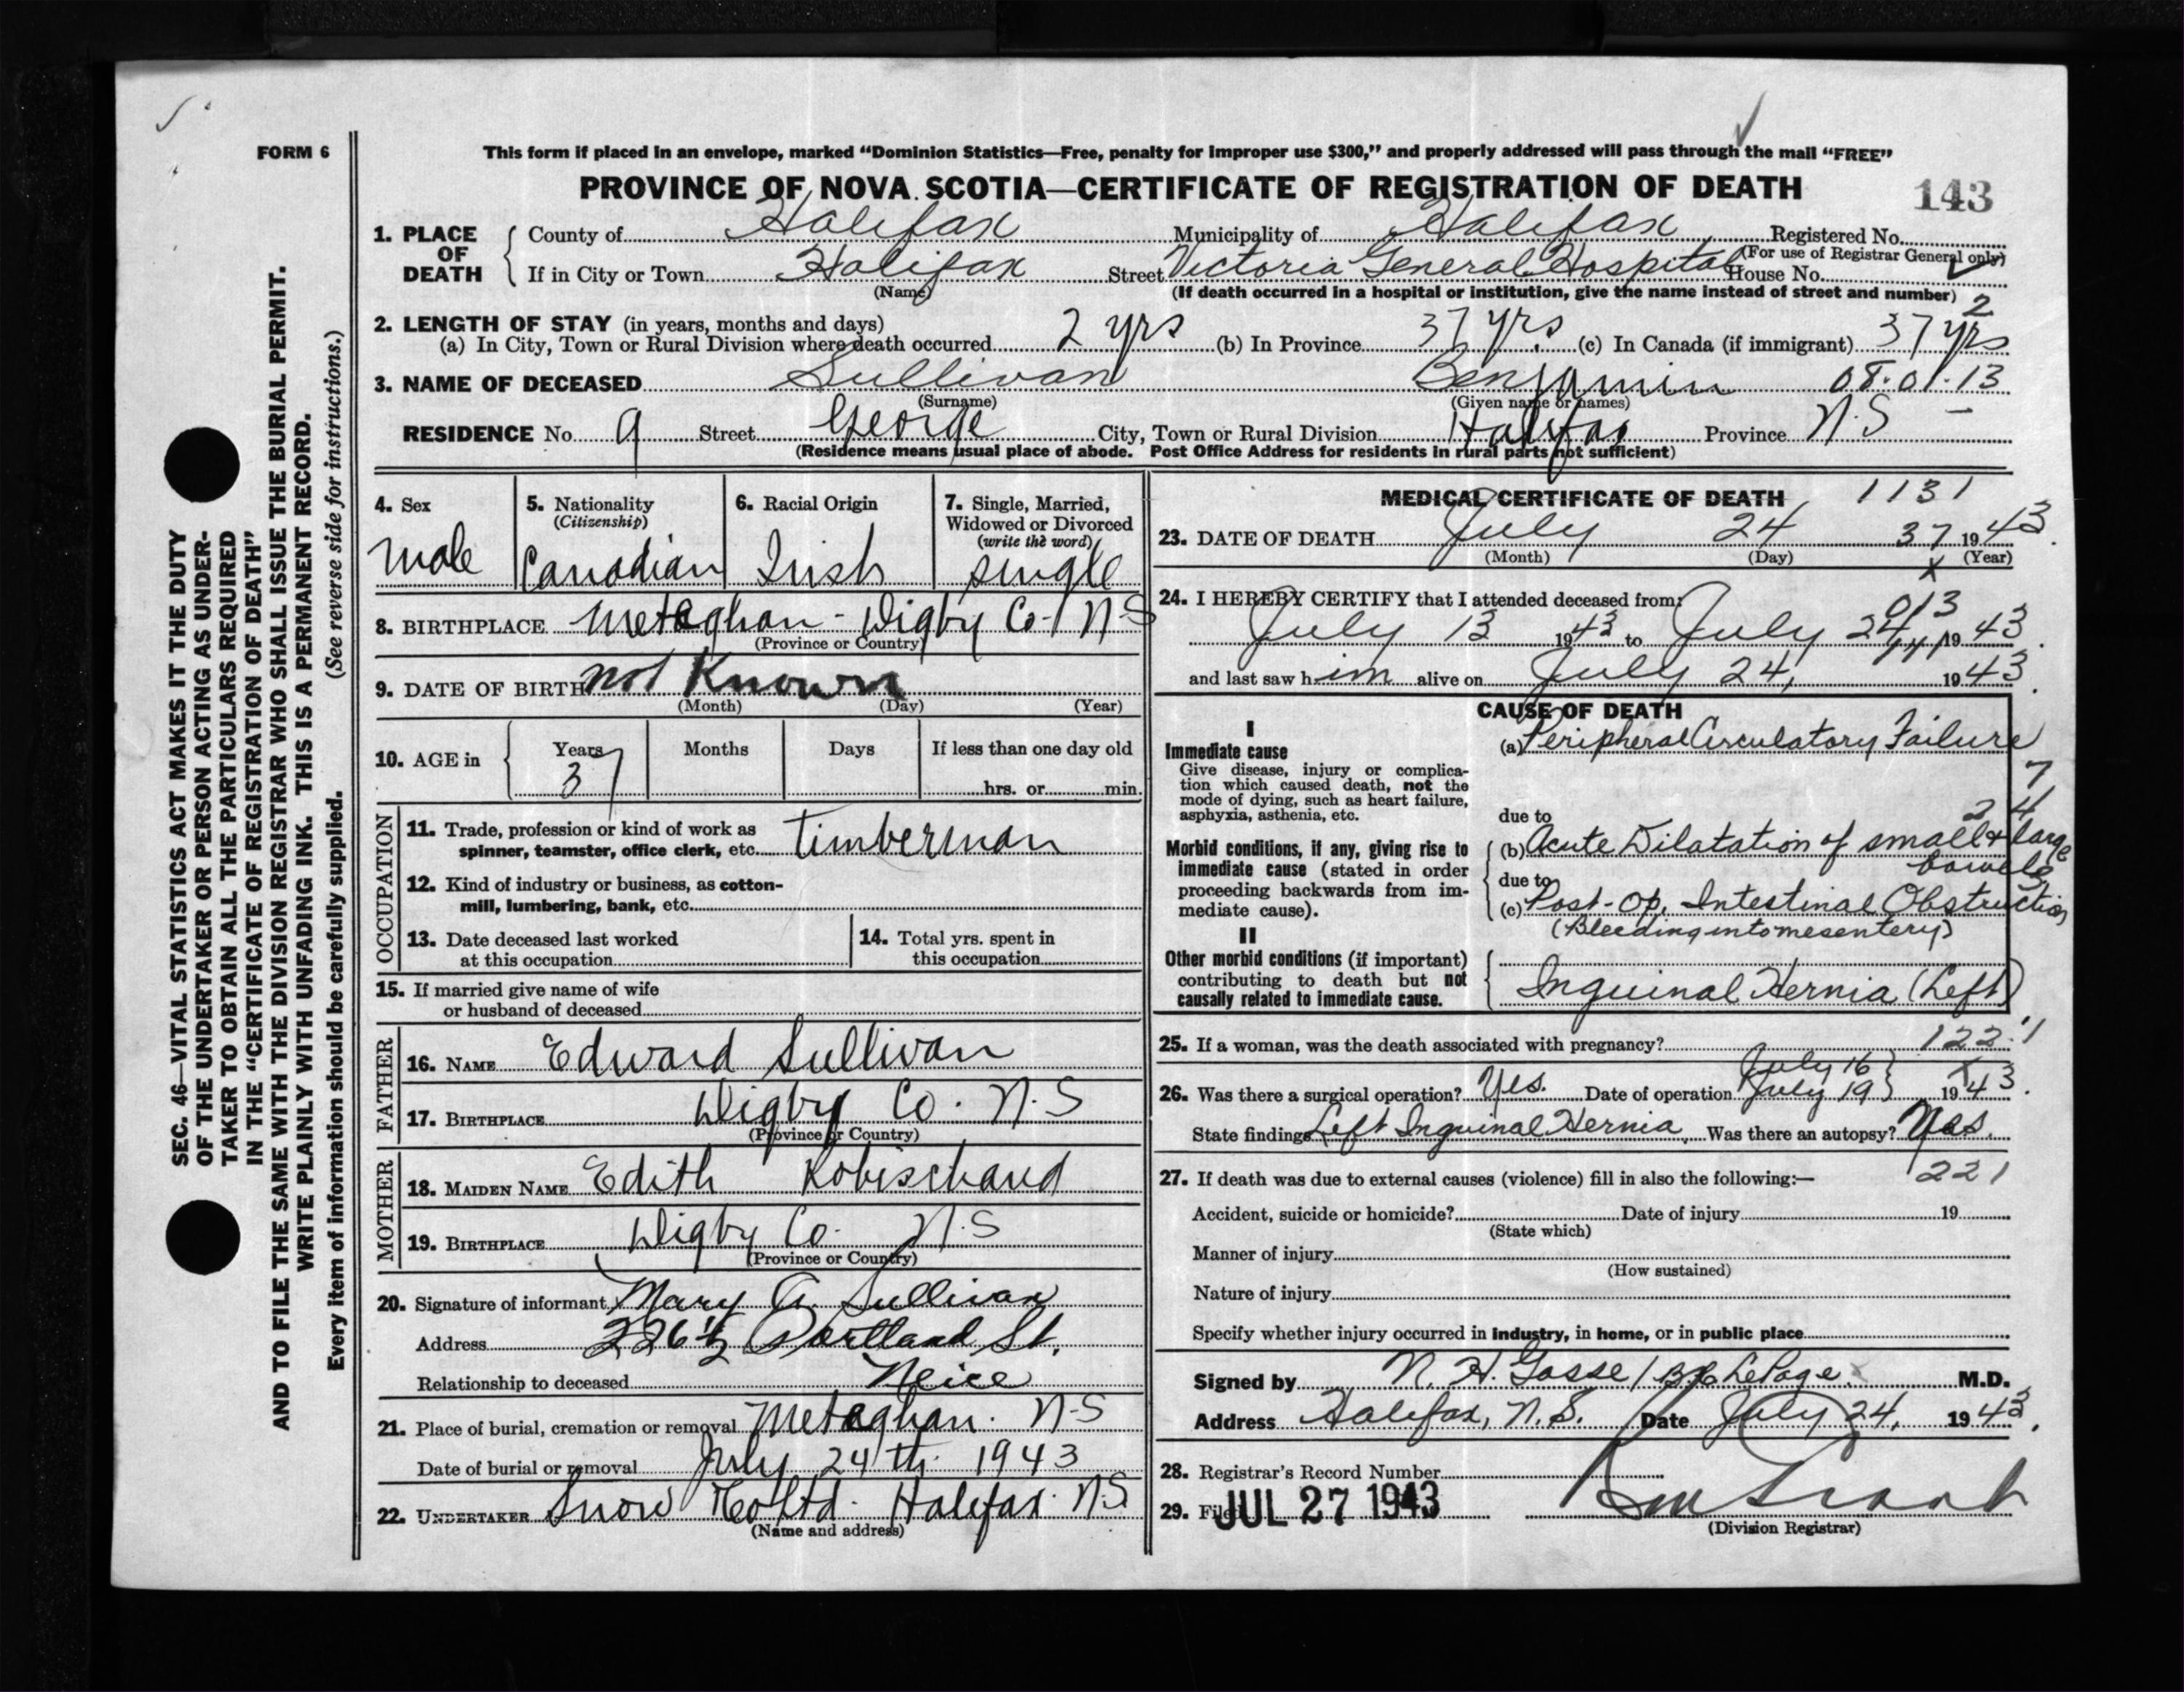 FORM 6
This form if placed in an envelope, marked “Dominion Statistics—Free, penalty for improper use $300,” and properly addressed will pass through the mail “FREE”
PROVINCE OF NOVA SCOTIA—CERTIFICATE OF REGISTRATION OF DEATH 143
1. PLACE OF DEATH County of Halifax Municipality of Halifax Registered No.
(For use of Registrar General only)
If in City or Town Halifax Street Victoria General Hospital House No.
(Name) (If death occurred in a hospital or institution, give the name instead of street and number)
2
2. LENGTH OF STAY (in years, months and days)
(a) In City, Town or Rural Division where death occurred 2 yrs (b) In Province 37 yrs (c) In Canada (if immigrant) 37 yrs
3. NAME OF DECEASED Sullivan Benjamin 08.01.13
(Surname) (Given name or names)
RESIDENCE No. 9 Street George City, Town or Rural Division Halifax Province N.S –
(Residence means usual place of abode. Post Office Address for residents in rural parts not sufficient)
4. Sex 5. Nationality 6. Racial Origin 7. Single, Married,
(Citizenship) Widowed or Divorced
(write the word)
male Canadian Irish single
8. BIRTHPLACE Meteghan - Digby Co- N-S
(Province or Country)
9. DATE OF BIRTH not Known
(Month) (Day) (Year)
10. AGE in Years Months Days If less than one day old
37 hrs. or min.
OCCUPATION
11. Trade, profession or kind of work as
spinner, teamster, office clerk, etc. Timberman
12. Kind of industry or business, as cotton-
mill, lumbering, bank, etc.
13. Date deceased last worked
at this occupation
14. Total yrs. spent in
this occupation
15. If married give name of wife
or husband of deceased
FATHER
16. NAME Edward Sullivan
17. BIRTHPLACE Digby Co. N.S
(Province or Country)
MOTHER
18. MAIDEN NAME Edith Robischaud
19. BIRTHPLACE Digby Co. N.S
(Province or Country)
20. Signature of informant Mary A. Sullivan
Address 226½ Portland St.
Relationship to deceased Neice
21. Place of burial, cremation or removal Meteghan. N-S
Date of burial or removal July 24th. 1943
22. UNDERTAKER Snow Co Ltd. Halifax. N.S.
(Name and address)
MEDICAL CERTIFICATE OF DEATH 1131
23. DATE OF DEATH July 24 37 1943.
(Month) (Day) (Year)
x
24. I HEREBY CERTIFY that I attended deceased from:
013
July 13 1943 to July 24, 1943.
and last saw him alive on July 24, 1943.
CAUSE OF DEATH
I
Immediate cause
Give disease, injury or complica-
tion which caused death, not the
mode of dying, such as heart failure,
asphyxia, asthenia, etc.
(a) Peripheral Circulatory Failure
7
24
due to
Morbid conditions, if any, giving rise to
immediate cause (stated in order
proceeding backwards from im-
mediate cause).
(b) Acute Dilatation of small & large
bowels
due to
(c) Post-op. Intestinal Obstruction
(Bleeding into mesentery)
II
Other morbid conditions (if important)
contributing to death but not
causally related to immediate cause.
Inguinal Hernia (Left)
25. If a woman, was the death associated with pregnancy? 122.1
26. Was there a surgical operation? Yes. Date of operation July 16 July 19 } x 1943.
State findings Left Inguinal Hernia. Was there an autopsy? Yes.
27. If death was due to external causes (violence) fill in also the following:— 221
Accident, suicide or homicide? Date of injury 19
(State which)
Manner of injury
(How sustained)
Nature of injury
Specify whether injury occurred in industry, in home, or in public place
Signed by N. H. Gosse / LePage M.D.
Address Halifax, N.S. Date July 24, 1943.
28. Registrar's Record Number
29. Filed JUL 27 1943
(Division Registrar)
SEC. 46—VITAL STATISTICS ACT MAKES IT THE DUTY
OF THE UNDERTAKER OR PERSON ACTING AS UNDER-
TAKER TO OBTAIN ALL THE PARTICULARS REQUIRED
IN THE “CERTIFICATE OF REGISTRATION OF DEATH”
AND TO FILE THE SAME WITH THE DIVISION REGISTRAR WHO SHALL ISSUE THE BURIAL PERMIT.
WRITE PLAINLY WITH UNFADING INK. THIS IS A PERMANENT RECORD.
Every item of information should be carefully supplied. (See reverse side for instructions.)